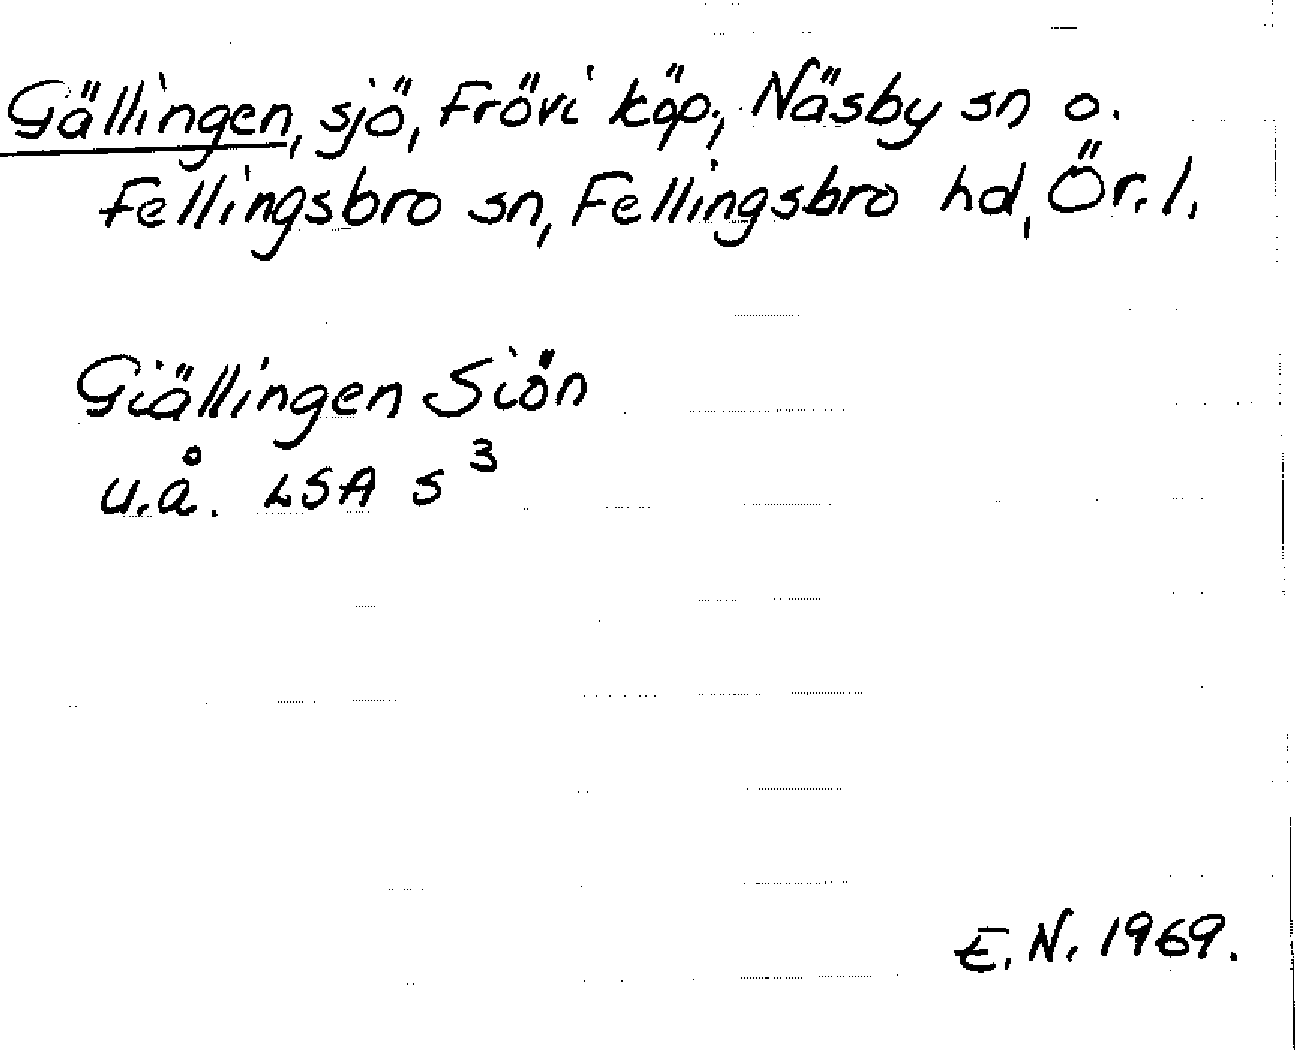 Gällingen, sjö, Frövi köp., Näsby sn o.
Fellingsbro sn, Fellingsbro hd, Ör. l.
Giällingen Siön
u.å. LSA S³
E. N. 1969.